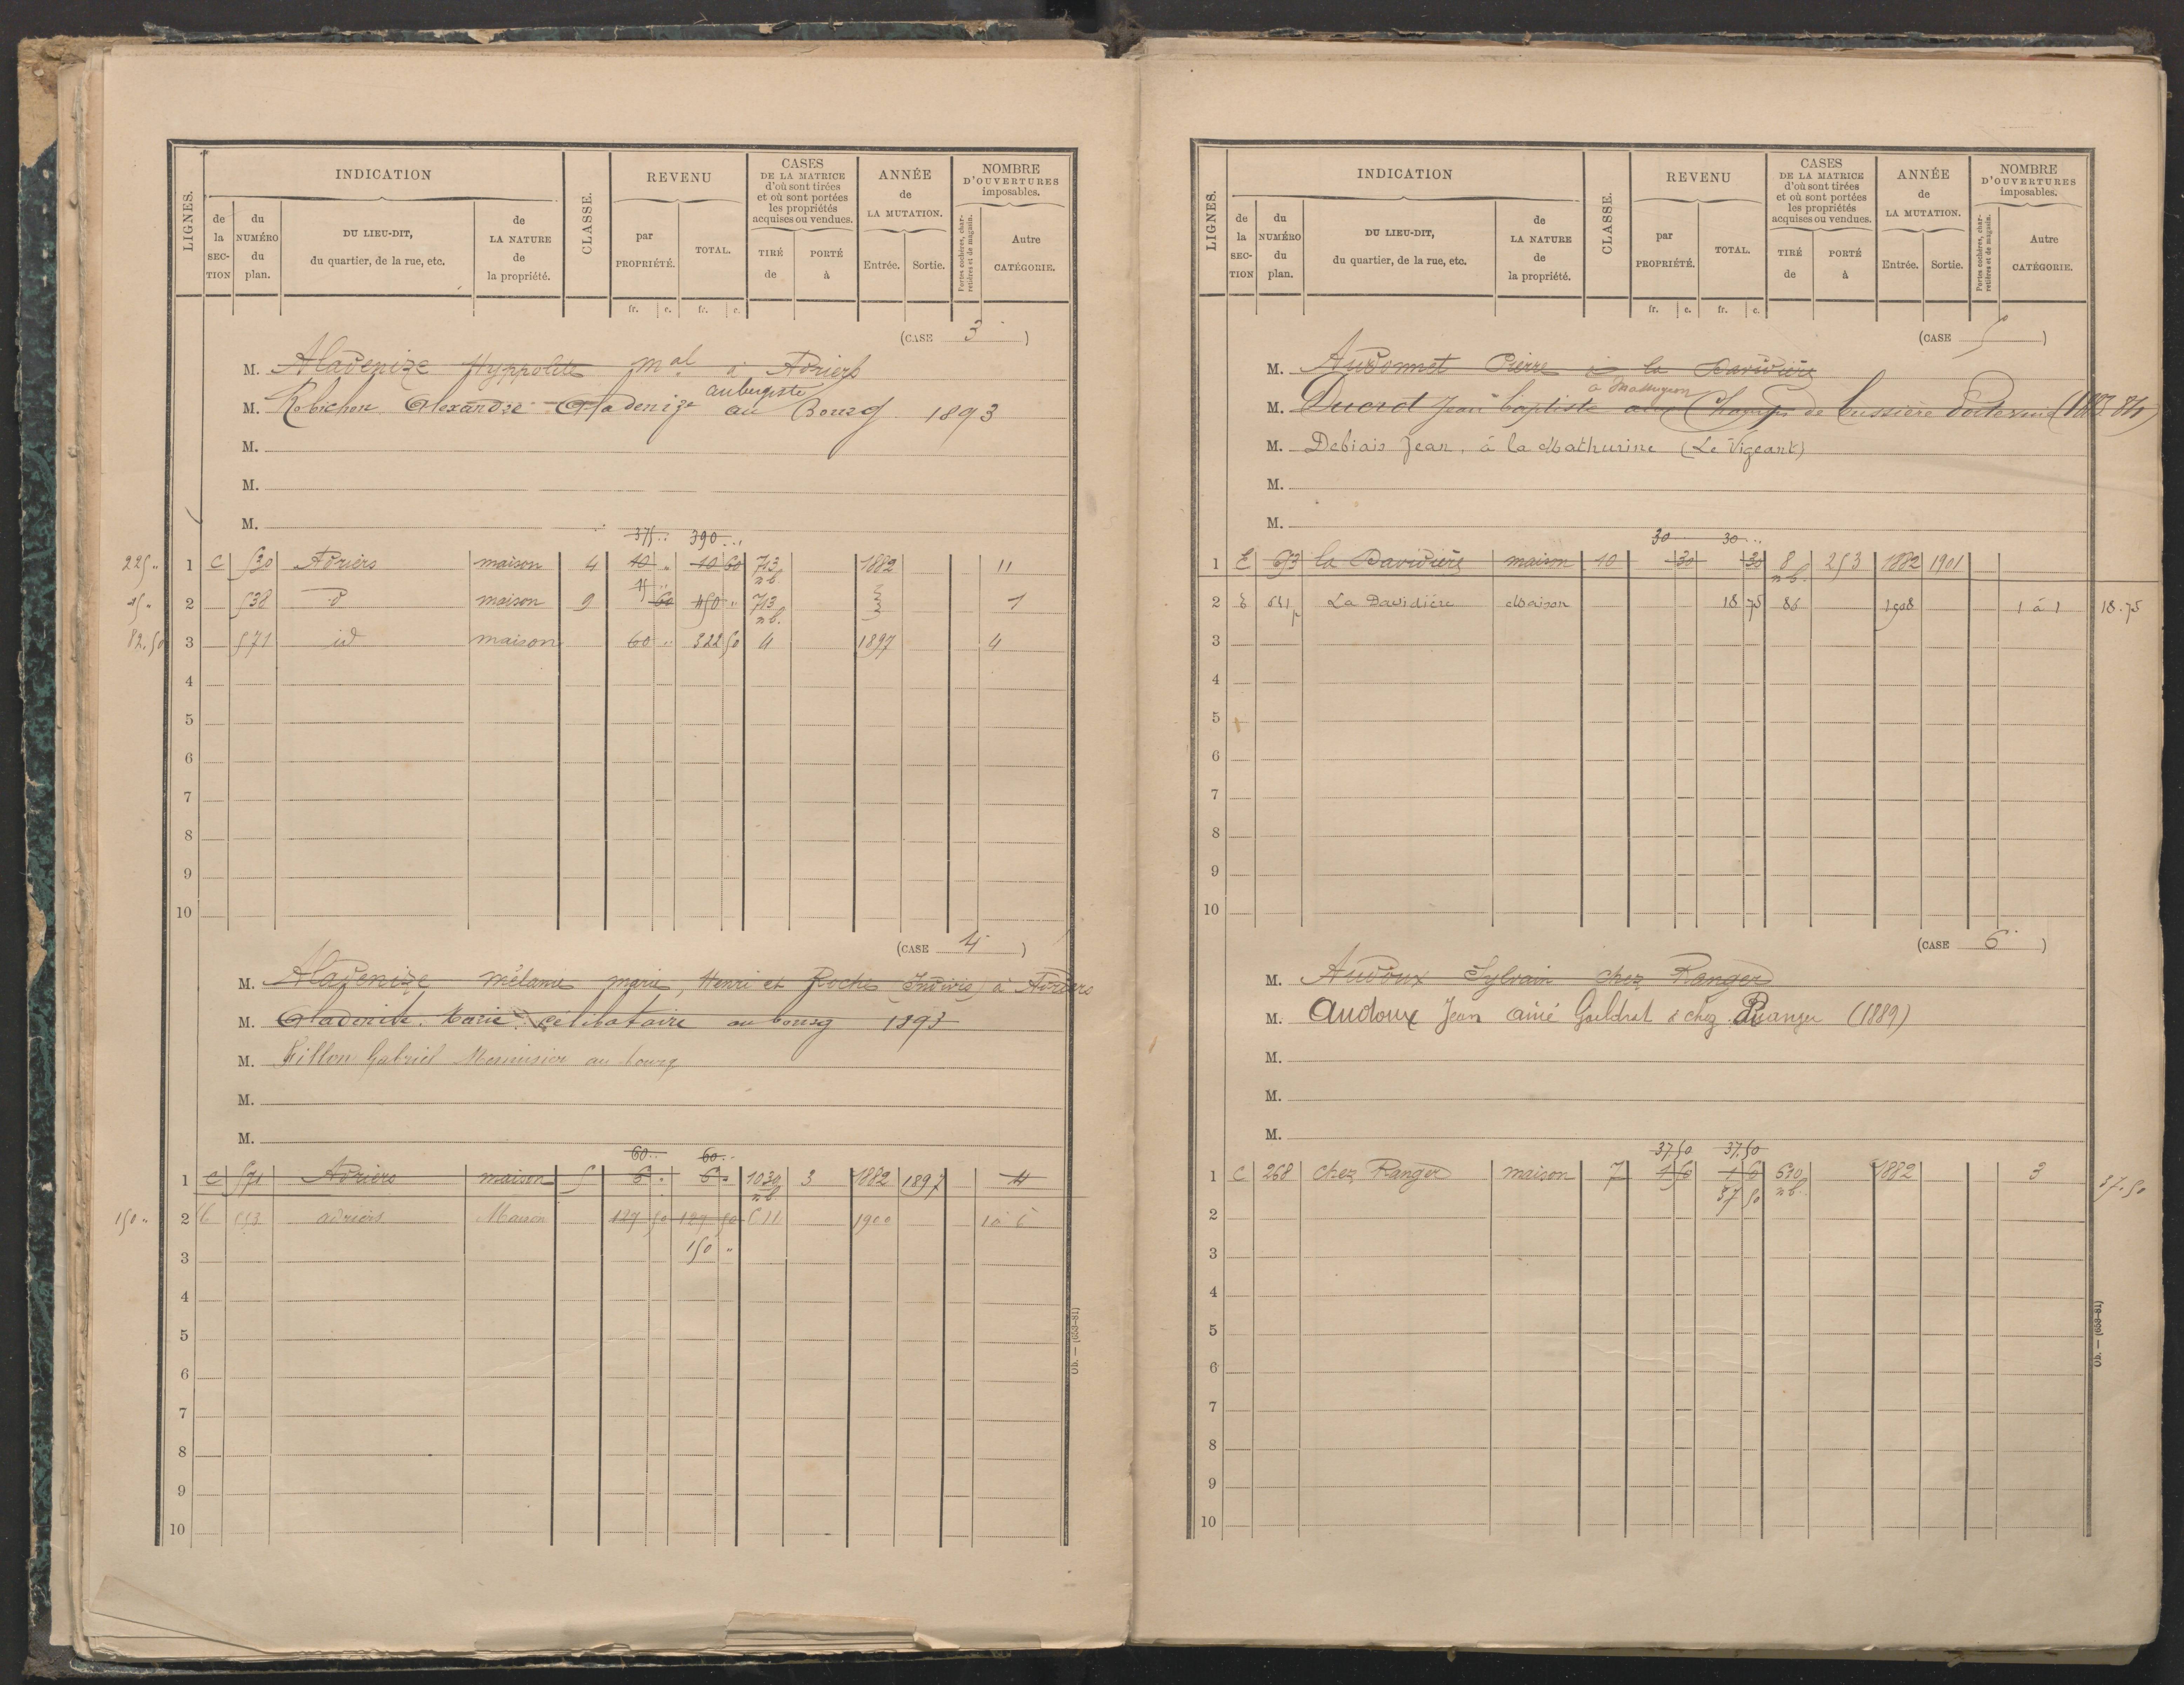 INDICATION
REVENU
CASES
DE LA MATRICE
d'où sont tirées
et où sont portées
les propriétés
acquises ou vendues.
ANNÉE
de
LA MUTATION.
NOMBRE
D'OUVERTURES
imposables.
LIGNES.
de la SECTION
du NUMÉRO du plan.
DU LIEU-DIT,
du quartier, de la rue, etc.
de LA NATURE de la propriété.
CLASSE.
par PROPRIÉTÉ.
TOTAL.
TIRÉ de
PORTÉ à
Entrée.
Sortie.
Portes cochères, charretières et de magasin.
Autre CATÉGORIE.
fr. c. fr. c.
(CASE 3 )
M. Aladenize Hyppolite mal à Adriers
aubergiste
M. Robichon Alexandre Aladenize au Bourg 1893
M.
M.
M.
375 .. 390 ..
225 " 1 C 530 Adriers maison 4 40 " 40 60 713 nb 1882 11
45 ..
45 " 2 538 d maison 9 60 450 " 713 nb. 1
82.50 3 571 id maison 60 " 322 50 4 1897 4
4
5
6
7
8
9
10
(CASE 4 )
M. Aladenize mélanie marie, Henri et Roche (Indivis) à Adriers
M. Aladenize Marie célibataire au bourg 1893
M. Gabriel Menuisier au bourg
M.
M.
60 .. 60 ..
1 C 571 Adriers maison 5 6 " 6 " 1030 nb. 3 1882 1897 4
150 " 2 C 553 adriers Maison 50 50 611 1900 1 à 6
150 "
3
4
5
6
7
8
9
10
Ob. — (653-81)
INDICATION
REVENU
CASES
DE LA MATRICE
d'où sont tirées
et où sont portées
les propriétés
acquises ou vendues.
ANNÉE
de
LA MUTATION.
NOMBRE
D'OUVERTURES
imposables.
LIGNES.
de la SECTION
du NUMÉRO du plan.
DU LIEU-DIT,
du quartier, de la rue, etc.
de LA NATURE de la propriété.
CLASSE.
par PROPRIÉTÉ.
TOTAL.
TIRÉ de
PORTÉ à
Entrée.
Sortie.
Portes cochères, charretières et de magasin.
Autre CATÉGORIE.
fr. c. fr. c.
(CASE 5 )
M. Audonnet Pierre à la Davidière
M. Ducrot Jean baptiste aux Champs de bussière
M. Debiais Jean, à la Mathurine (Le Vigeant)
M.
M.
30 30 ..
1 E 673 la Davidière maison 10 30 30 8 nb. 253 1882 1901
2 E 641 p La Davidière Maison 18 75 86 1908 1 à 1 18.75
3
4
5
6
7
8
9
10
(CASE 6 )
M. Audoux Sylvain chez Ranger
M. Audoux Jean ainé chez Ranger (1889)
M.
M.
M.
37.50 37.50
1 C 268 chez Ranger maison 7 1 6 1 6 630 nb. 1882 3 37.50
37 50
2
3
4
5
6
7
8
9
10
Ob. — (653-81)